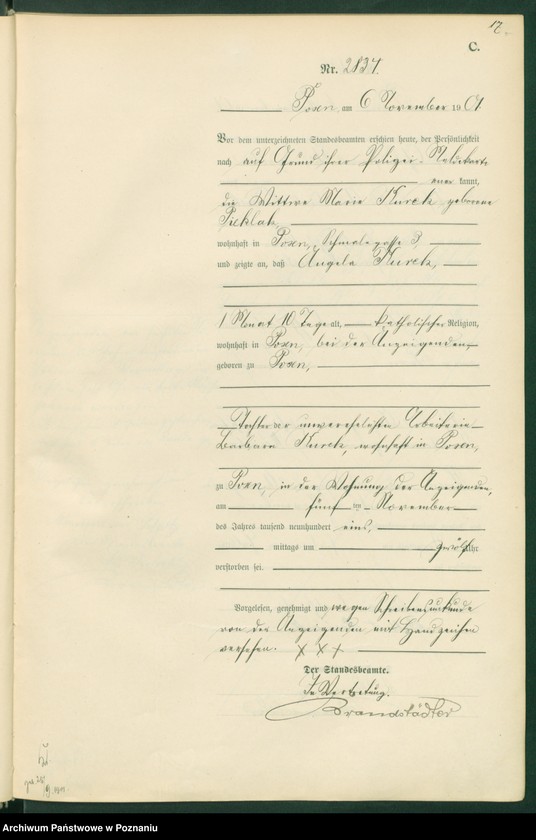 17.
C.
Nr. 2837.
Posen, am 6 November 1901
Vor dem unterzeichneten Standesbeamten erschien heute, der Persönlichkeit
nach auf Grund ihrer Polizei-Meldekarte
kannt,
die Wittwe Marie Kurek geborene
wohnhaft in Posen, 3,
und zeigte an, daß Angela Kurek,
1 Monat 10 Tage alt, katholischer Religion,
wohnhaft in Posen, bei der Anzeigenden,
geboren zu Posen,
Tochter der unverehelichten Arbeiterin
Barbara Kurek, wohnhaft in Posen,
zu Posen, in der Wohnung der Anzeigenden,
am fünf ten November
des Jahres tausend neunhundert eins,
mittags um zwölf Uhr
verstorben sei.
Vorgelesen, genehmigt und wegen Schreibensunkunde
von der Anzeigenden mit Handzeichen
versehen. X X +
Der Standesbeamte.
In Vertretung.
Brandstädter
Archiwum Państwowe w Poznaniu